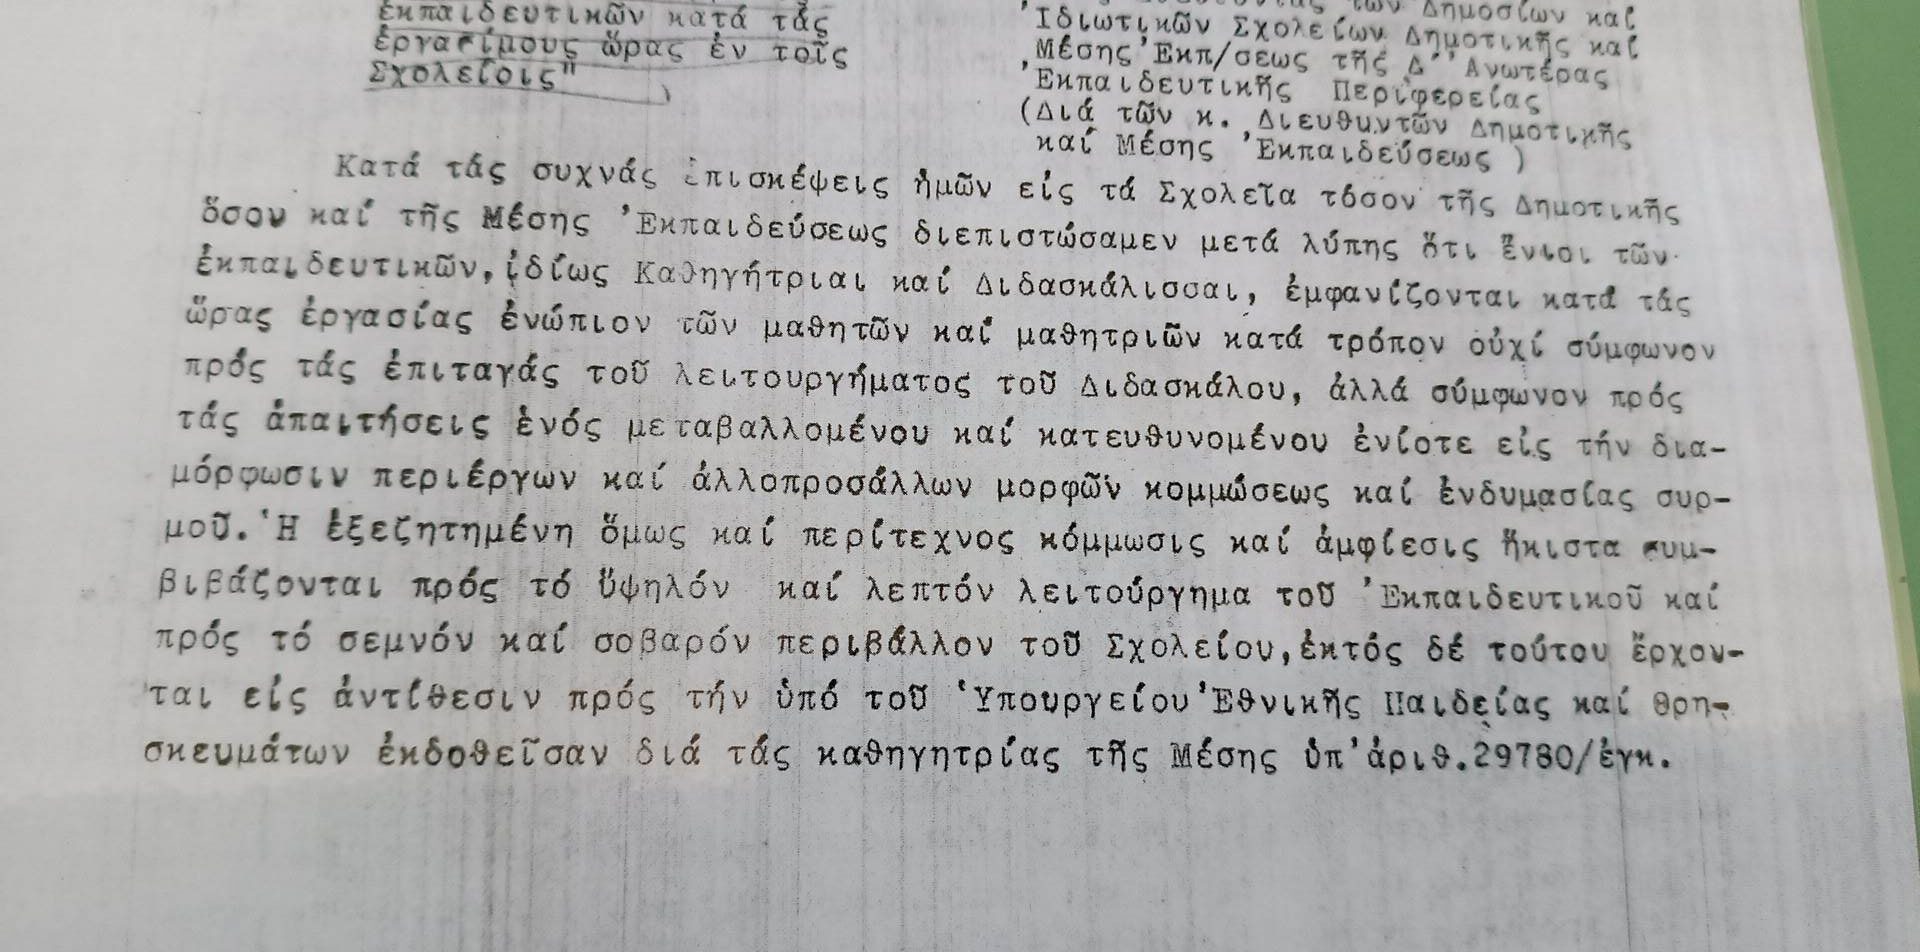 ἐκπαιδευτικῶν κατά τάς
ἐργασίμους ὥρας ἐν τοῖς
Σχολείοις"
τῶν Δημοσίων καί
Ἰδιωτικῶν Σχολείων Δημοτικῆς καί
Μέσης Ἐκπ/σεως τῆς Δ' Ἀνωτέρας
Ἐκπαιδευτικῆς Περιφερείας
(Διά τῶν κ. Διευθυντῶν Δημοτικῆς
καί Μέσης Ἐκπαιδεύσεως )
Κατά τάς συχνάς ἐπισκέψεις ἡμῶν εἰς τά Σχολεῖα τόσον τῆς Δημοτικῆς
ὅσον καί τῆς Μέσης Ἐκπαιδεύσεως διεπιστώσαμεν μετά λύπης ὅτι ἔνιοι τῶν
ἐκπαιδευτικῶν, ἰδίως Καθηγήτριαι καί Διδασκάλισσαι, ἐμφανίζονται κατά τάς
ὥρας ἐργασίας ἐνώπιον τῶν μαθητῶν καί μαθητριῶν κατά τρόπον οὐχί σύμφωνον
πρός τάς ἐπιταγάς τοῦ λειτουργήματος τοῦ Διδασκάλου, ἀλλά σύμφωνον πρός
τάς ἀπαιτήσεις ἑνός μεταβαλλομένου καί κατευθυνομένου ἐνίοτε εἰς τήν δια-
μόρφωσιν περιέργων καί ἀλλοπροσάλλων μορφῶν κομμώσεως καί ἐνδυμασίας συρ-
μοῦ. Ἡ ἐξεζητημένη ὅμως καί περίτεχνος κόμμωσις καί ἀμφίεσις ἥκιστα συμ-
βιβάζονται πρός τό ὕψηλόν καί λεπτόν λειτούργημα τοῦ Ἐκπαιδευτικοῦ καί
πρός τό σεμνόν καί σοβαρόν περιβάλλον τοῦ Σχολείου, ἐκτός δέ τούτου ἔρχον-
ται εἰς ἀντίθεσιν πρός τήν ὑπό τοῦ Ὑπουργείου Ἐθνικῆς Παιδείας καί Θρη-
σκευμάτων ἐκδοθεῖσαν διά τάς καθηγητρίας τῆς Μέσης ὑπ' ἀριθ. 29780/ἐγκ.